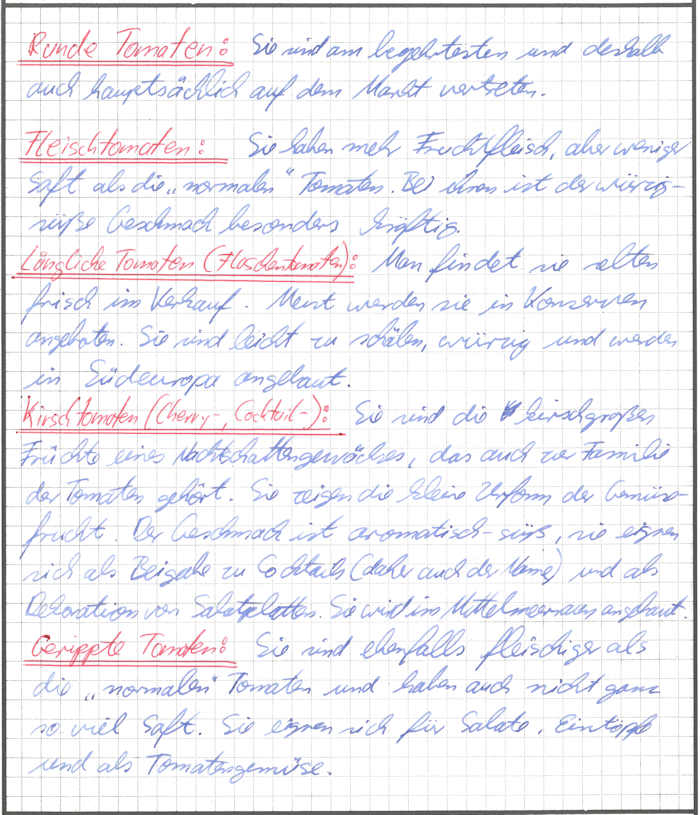 Runde Tomaten: Sie sind am begehrtesten und deshalb
auch hauptsächlich auf dem Markt vertreten.
Fleischtomaten: Sie haben mehr Fruchtfleisch, aber weniger
Saft als die „normalen" Tomaten. Bei ihnen ist der würzig-
süße Geschmack besonders kräftig.
Längliche Tomaten (Flaschentomaten): Man findet sie selten
frisch im Verkauf. Meist werden sie in Konserven
angeboten. Sie sind leicht zu schälen, würzig und werden
in Südeuropa angebaut.
Kirschtomaten (Cherry-, Cocktail-): Sie sind die kirschgroßen
Früchte eines Nachtschattengewächses, das auch zur Familie
der Tomaten gehört. Sie zeigen die kleine Urform der Gemüse-
frucht. Der Geschmack ist aromatisch-süß, sie eignen
sich als Beigabe zu Cocktails (daher auch der Name) und als
Dekoration von Salatplatten. Sie wird im Mittelmeerraum angebaut.
Gerippte Tomaten: Sie sind ebenfalls fleischiger als
die „normalen" Tomaten und haben auch nicht ganz
so viel Saft. Sie eignen sich für Salate, Eintöpfe
und als Tomatengemüse.